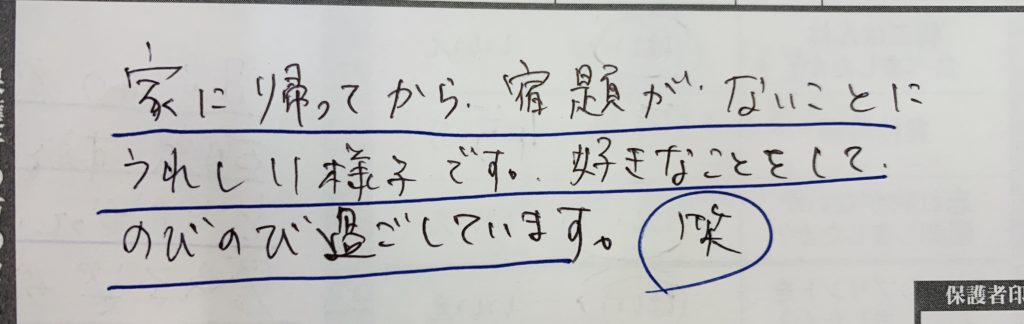 家に帰ってから、宿題がないことに
うれしい様子です。好きなことをして、
のびのび過ごしています。
保護者印